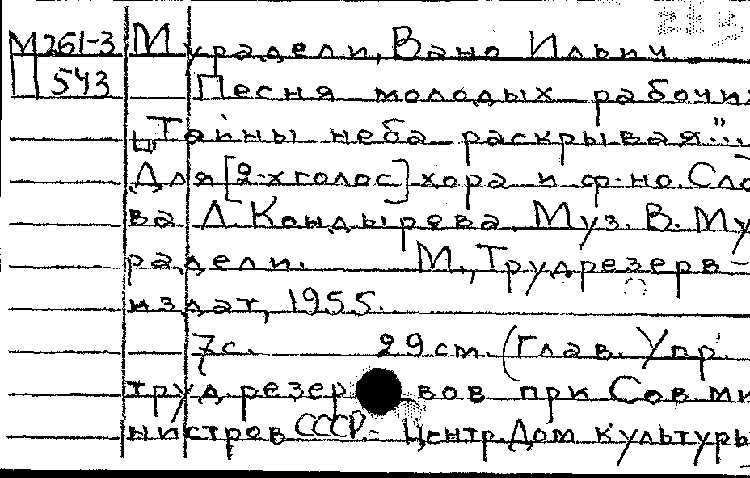 М261-3 Мурадели, Вано Ильич
П 543 Песня молодых рабочих
„Тайны неба раскрывая..."
Для [2-х голос] хора и ф-но. Сло
ва Л. Кондырева. Муз. В. Му
радели. М., Трудрезерв-
издат, 1955.
7с. 29 см. (Глав. Упр.
труд. резервов при Сов. ми
нистров СССР.- Центр. Дом культуры